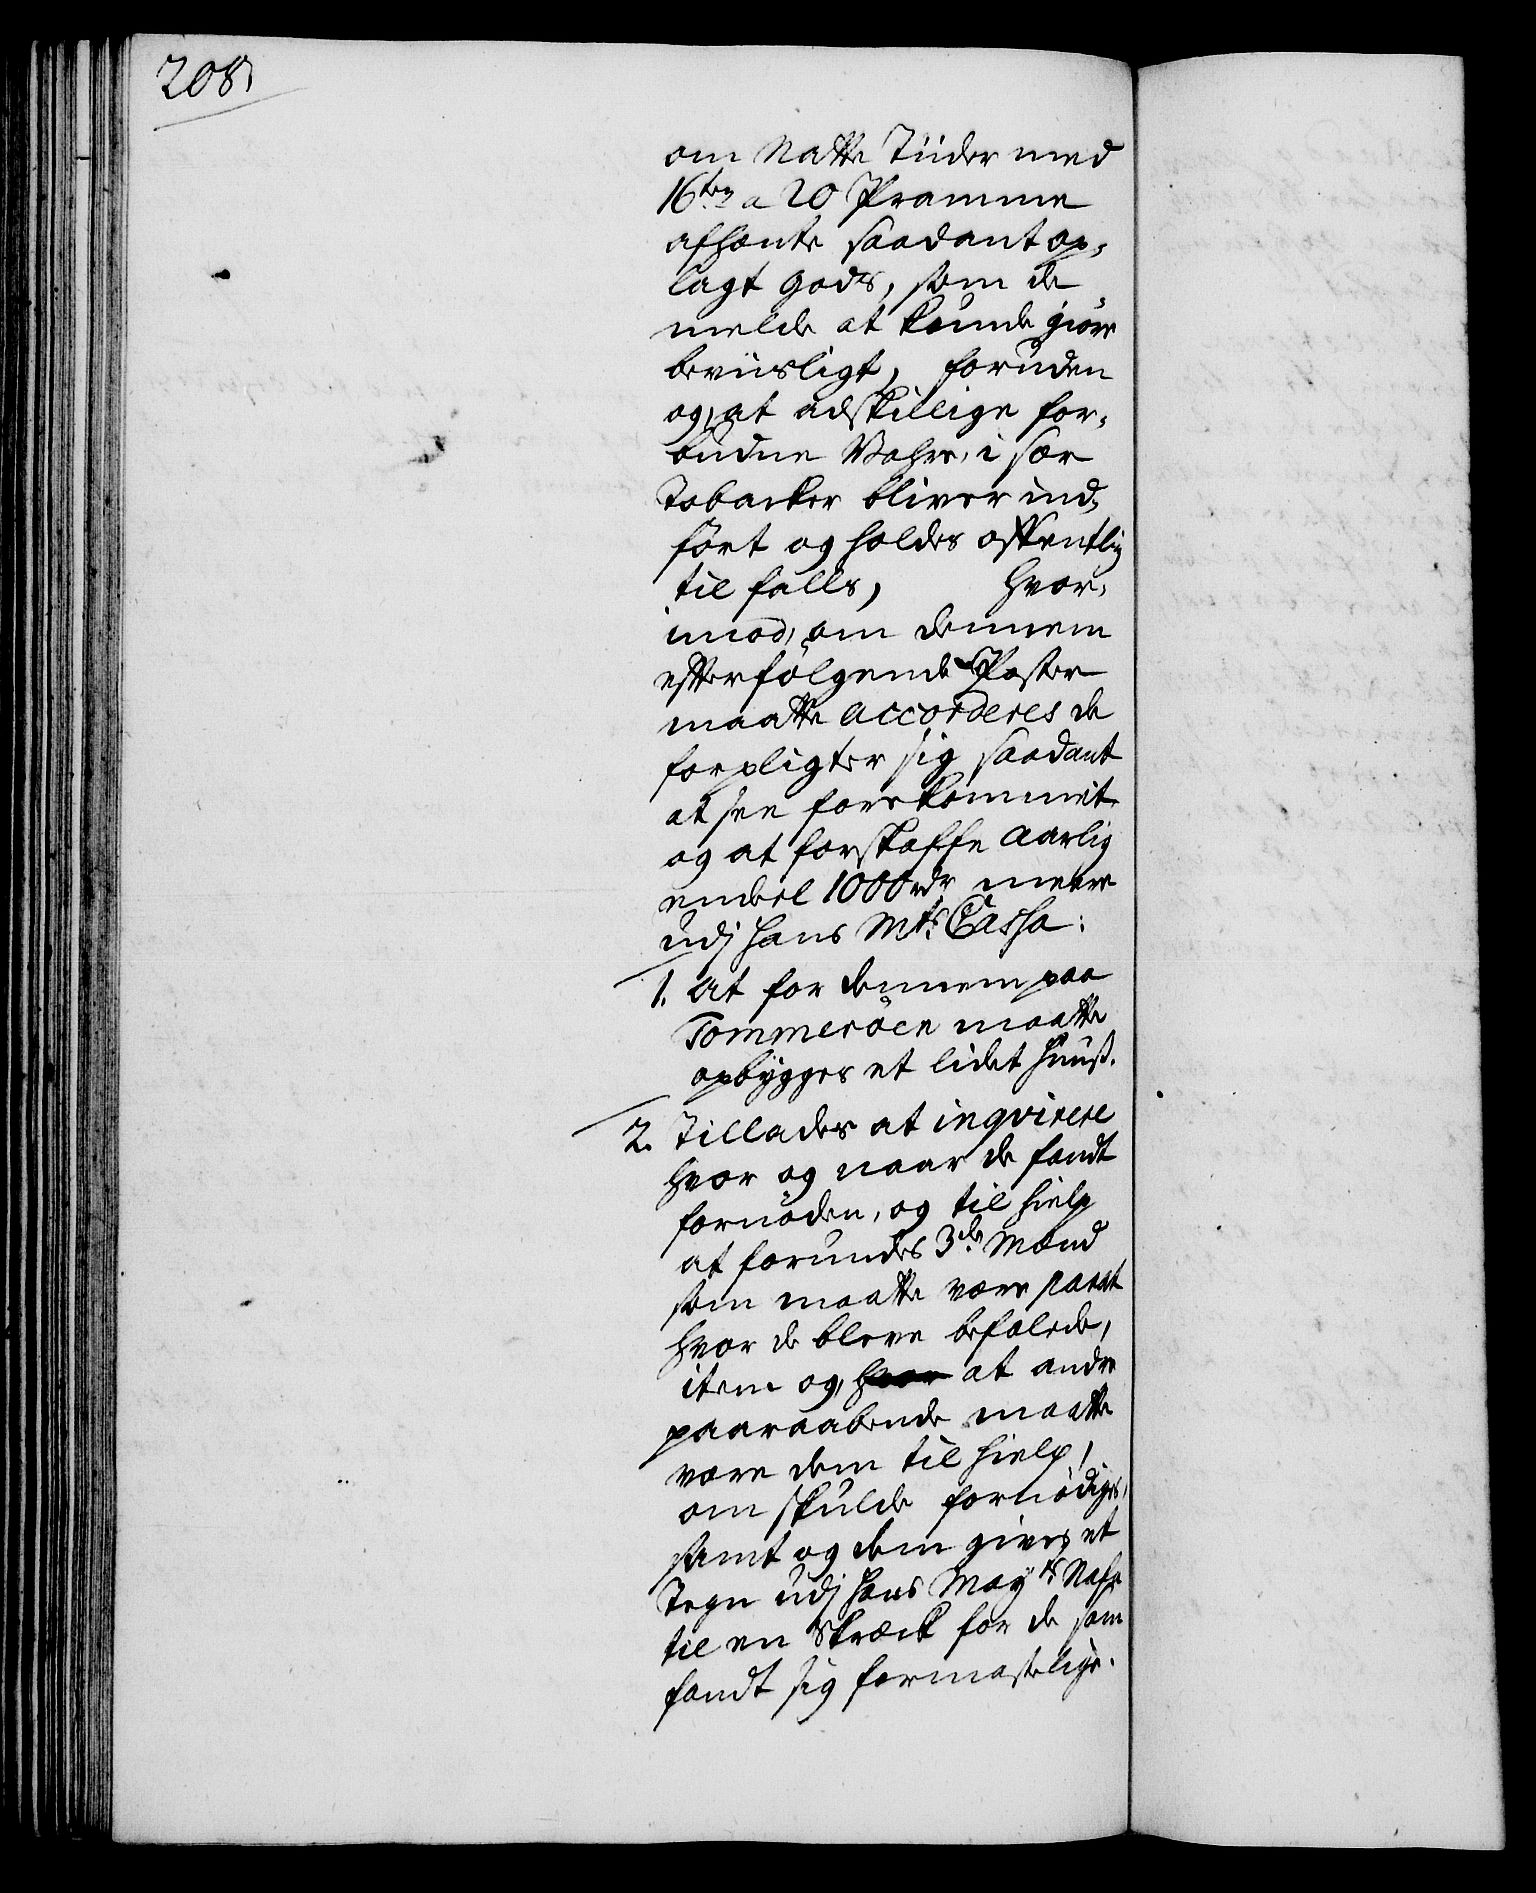 208
om Natte Tiider med
16ten a 20 Pramme
afhente saadant op,
lagt gods, som de
melde at kunde giöre
beviisligt, foruden
og, at adskillige for,
budne Vahre, i sær
Tobacker bliver ind,
fört og holdes offentlig
til falls, hvor,
imod, om dennem
efterfölgende Poster
maatte accorderes de
forpligter sig saadant
at see forekommet
og at forskaffe aarlig
endeel 1000 rdr meere
udj Hans Mts. Cassa:
1. At for dennem paa
Tommeröen maatte
opbygges et lidet Huus.
2. Tillades at inqvirere
hvor og naar de fandt
fornöden, og til hielp
at forundes 3de Mænd
som maatte være parat
hvor de bleve befalede,
item og, hvor at andre
paaraabende maatte
være dem til hielp,
om skulde fornödiges,
samt og dem gives et
Tegn udj Hans Mayts. Nafn
til en Skræck for de som
fandt sig formastelige.